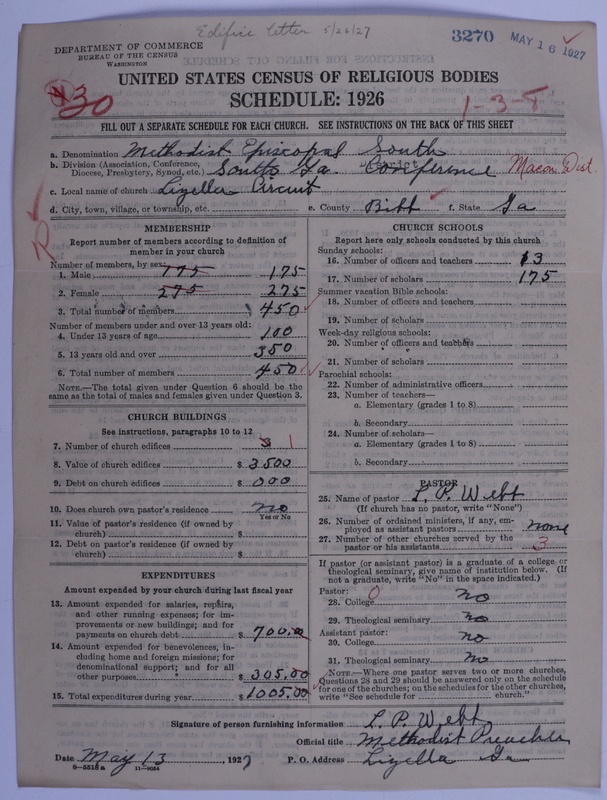 Edifice Letter 5/26/27
3270 MAY 16 1927
DEPARTMENT OF COMMERCE
BUREAU OF THE CENSUS
WASHINGTON
UNITED STATES CENSUS OF RELIGIOUS BODIES
SCHEDULE: 1926
1-3-8
FILL OUT A SEPARATE SCHEDULE FOR EACH CHURCH. SEE INSTRUCTIONS ON THE BACK OF THIS SHEET
a. Denomination Methodist Episcopal South
b. Division (Association, Conference, Diocese, Presbytery, Synod, etc.) South Ga Conference Macon Dist.
c. Local name of church Lizella Circuit
d. City, town, village, or township, etc. e. County Bibb f. State Ga
MEMBERSHIP
Report number of members according to definition of
member in your church
Number of members, by sex:
1. Male 175 175
2. Female 275 275
3. Total number of members 450
Number of members under and over 13 years old:
4. Under 13 years of age 100
5. 13 years old and over 350
6. Total number of members 450
NOTE.—The total given under Question 6 should be the
same as the total of males and females given under Question 3.
CHURCH BUILDINGS
See instructions, paragraphs 10 to 12
7. Number of church edifices 3 1
8. Value of church edifices $ 3500
9. Debt on church edifices $ 000
10. Does church own pastor's residence no
Yes or No
11. Value of pastor's residence (if owned by
church) $
12. Debt on pastor's residence (if owned by
church) $
EXPENDITURES
Amount expended by your church during last fiscal year
13. Amount expended for salaries, repairs,
and other running expenses; for im-
provements or new buildings; and for
payments on church debt $ 700.00
14. Amount expended for benevolences, in-
cluding home and foreign missions; for
denominational support; and for all
other purposes $ 305.00
15. Total expenditures during year $ 1005.00
CHURCH SCHOOLS
Report here only schools conducted by this church
Sunday schools:
16. Number of officers and teachers 13
17. Number of scholars 175
Summer vacation Bible schools:
18. Number of officers and teachers
19. Number of scholars
Week-day religious schools:
20. Number of officers and teachers
21. Number of scholars
Parochial schools:
22. Number of administrative officers
23. Number of teachers—
a. Elementary (grades 1 to 8)
b. Secondary
24. Number of scholars—
a. Elementary (grades 1 to 8)
b. Secondary
PASTOR
25. Name of pastor L. P. Webb
(If church has no pastor, write "None")
26. Number of ordained ministers, if any, em-
ployed as assistant pastors none
27. Number of other churches served by the
pastor or his assistants 3
If pastor (or assistant pastor) is a graduate of a college or
theological seminary, give name of institution below. (If
not a graduate, write "No" in the space indicated.)
Pastor:
28. College no
29. Theological seminary no
Assistant pastor:
30. College no
31. Theological seminary no
NOTE.—Where one pastor serves two or more churches,
Questions 28 and 29 should be answered only on the schedule
for one of the churches; on the schedules for the other churches,
write "See schedule for church."
Signature of person furnishing information L. P. Webb
Official title Methodist Preacher
Date May 13, 1927 P. O. Address Lizella Ga
8-5518a 11-9054